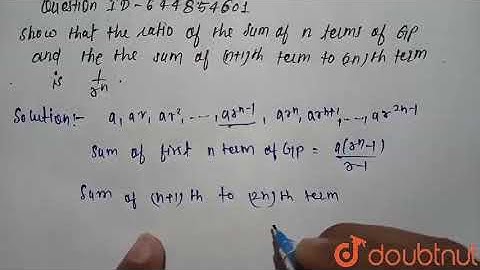 Question ID-644854601
Show that the ratio of the sum of n terms of GP
and the the sum of (n+1)th term to (2n)th term
is 1/r^n.
Solution:- a, ar, ar², ---, ar^n-1, ar^n, ar^n+1, ---, ar^2n-1
Sum of first n term of GP = a(r^n-1)/r-1
Sum of (n+1)th to (2n)th term
doubtnut